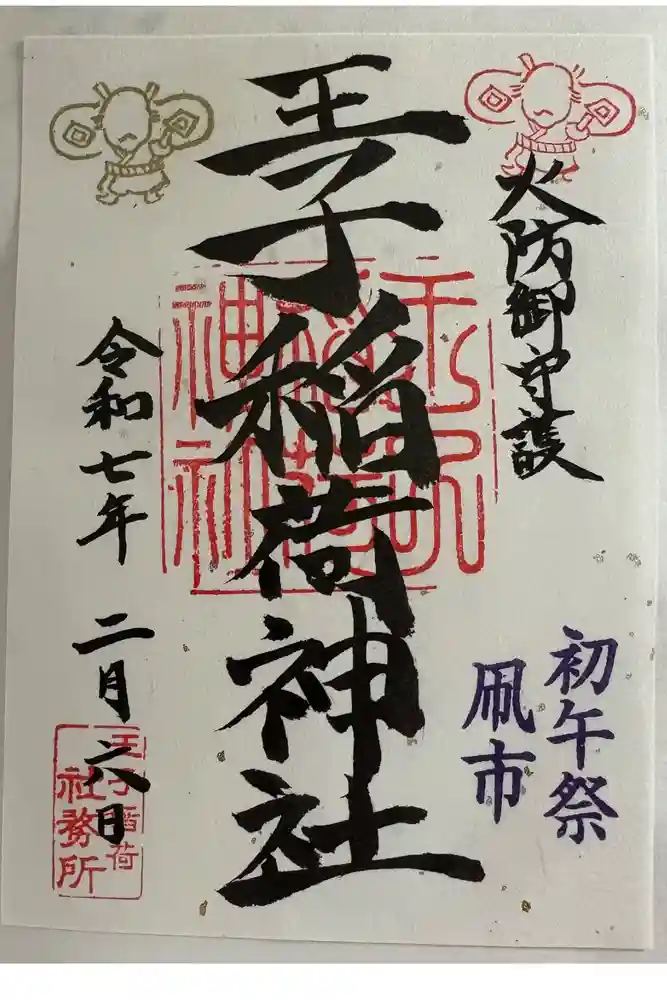 火防御守護
初午祭
凧市
王子稲荷神社
令和七年 二月六日
王子稲荷
社務所